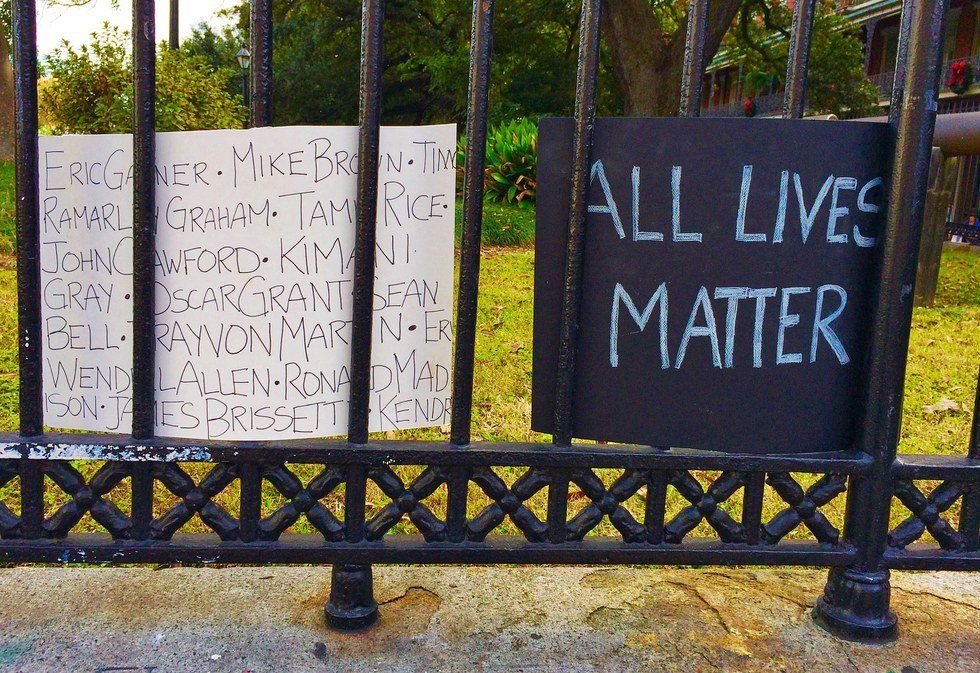 ERIC GARNER · MIKE BROWN · TIM
RAMARLEY GRAHAM · TAMIR RICE ·
JOHN CRAWFORD · KIMANI
GRAY · OSCAR GRANT · SEAN
BELL · TRAYVON MARTIN · ER
WENDELL ALLEN · RONALD MAD
ISON · JAMES BRISSETTE · KENDR
ALL LIVES
MATTER